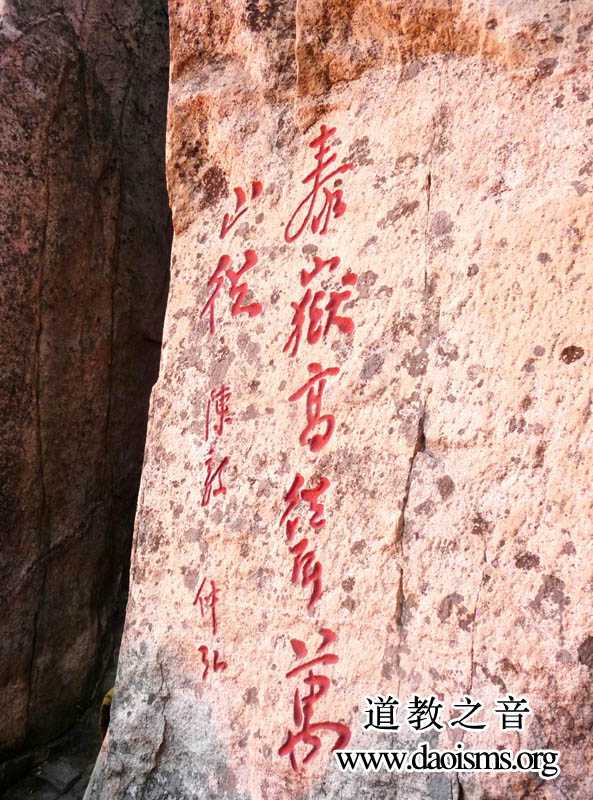 泰嶽高聳萬
山從 陳毅 仲弘
道教之音
www.daoisms.org